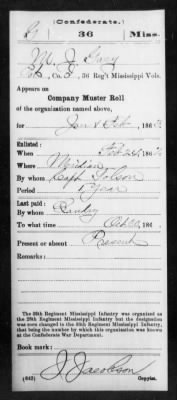 (Confederate.)
G 36 Miss.
M. J.
Co. 36 Reg't Mississippi Vols.
Appears on
Company Muster Roll
of the organization named above,
for Jan & Feb, 186
Enlisted:
When Feb 186
Where Meridian
By whom Capt
Period 1 year
Last paid:
By whom
To what time Oct 186
Present or absent Present
Remarks:
The 36th Regiment Mississippi Infantry was organized as
the 28th Regiment Mississippi Infantry but the designation
was soon changed to the 36th Regiment Mississippi Infantry,
that being the number by which this organization was known
at the Confederate War Department.
Book mark:
J. Jacobson
(642) Copyist.